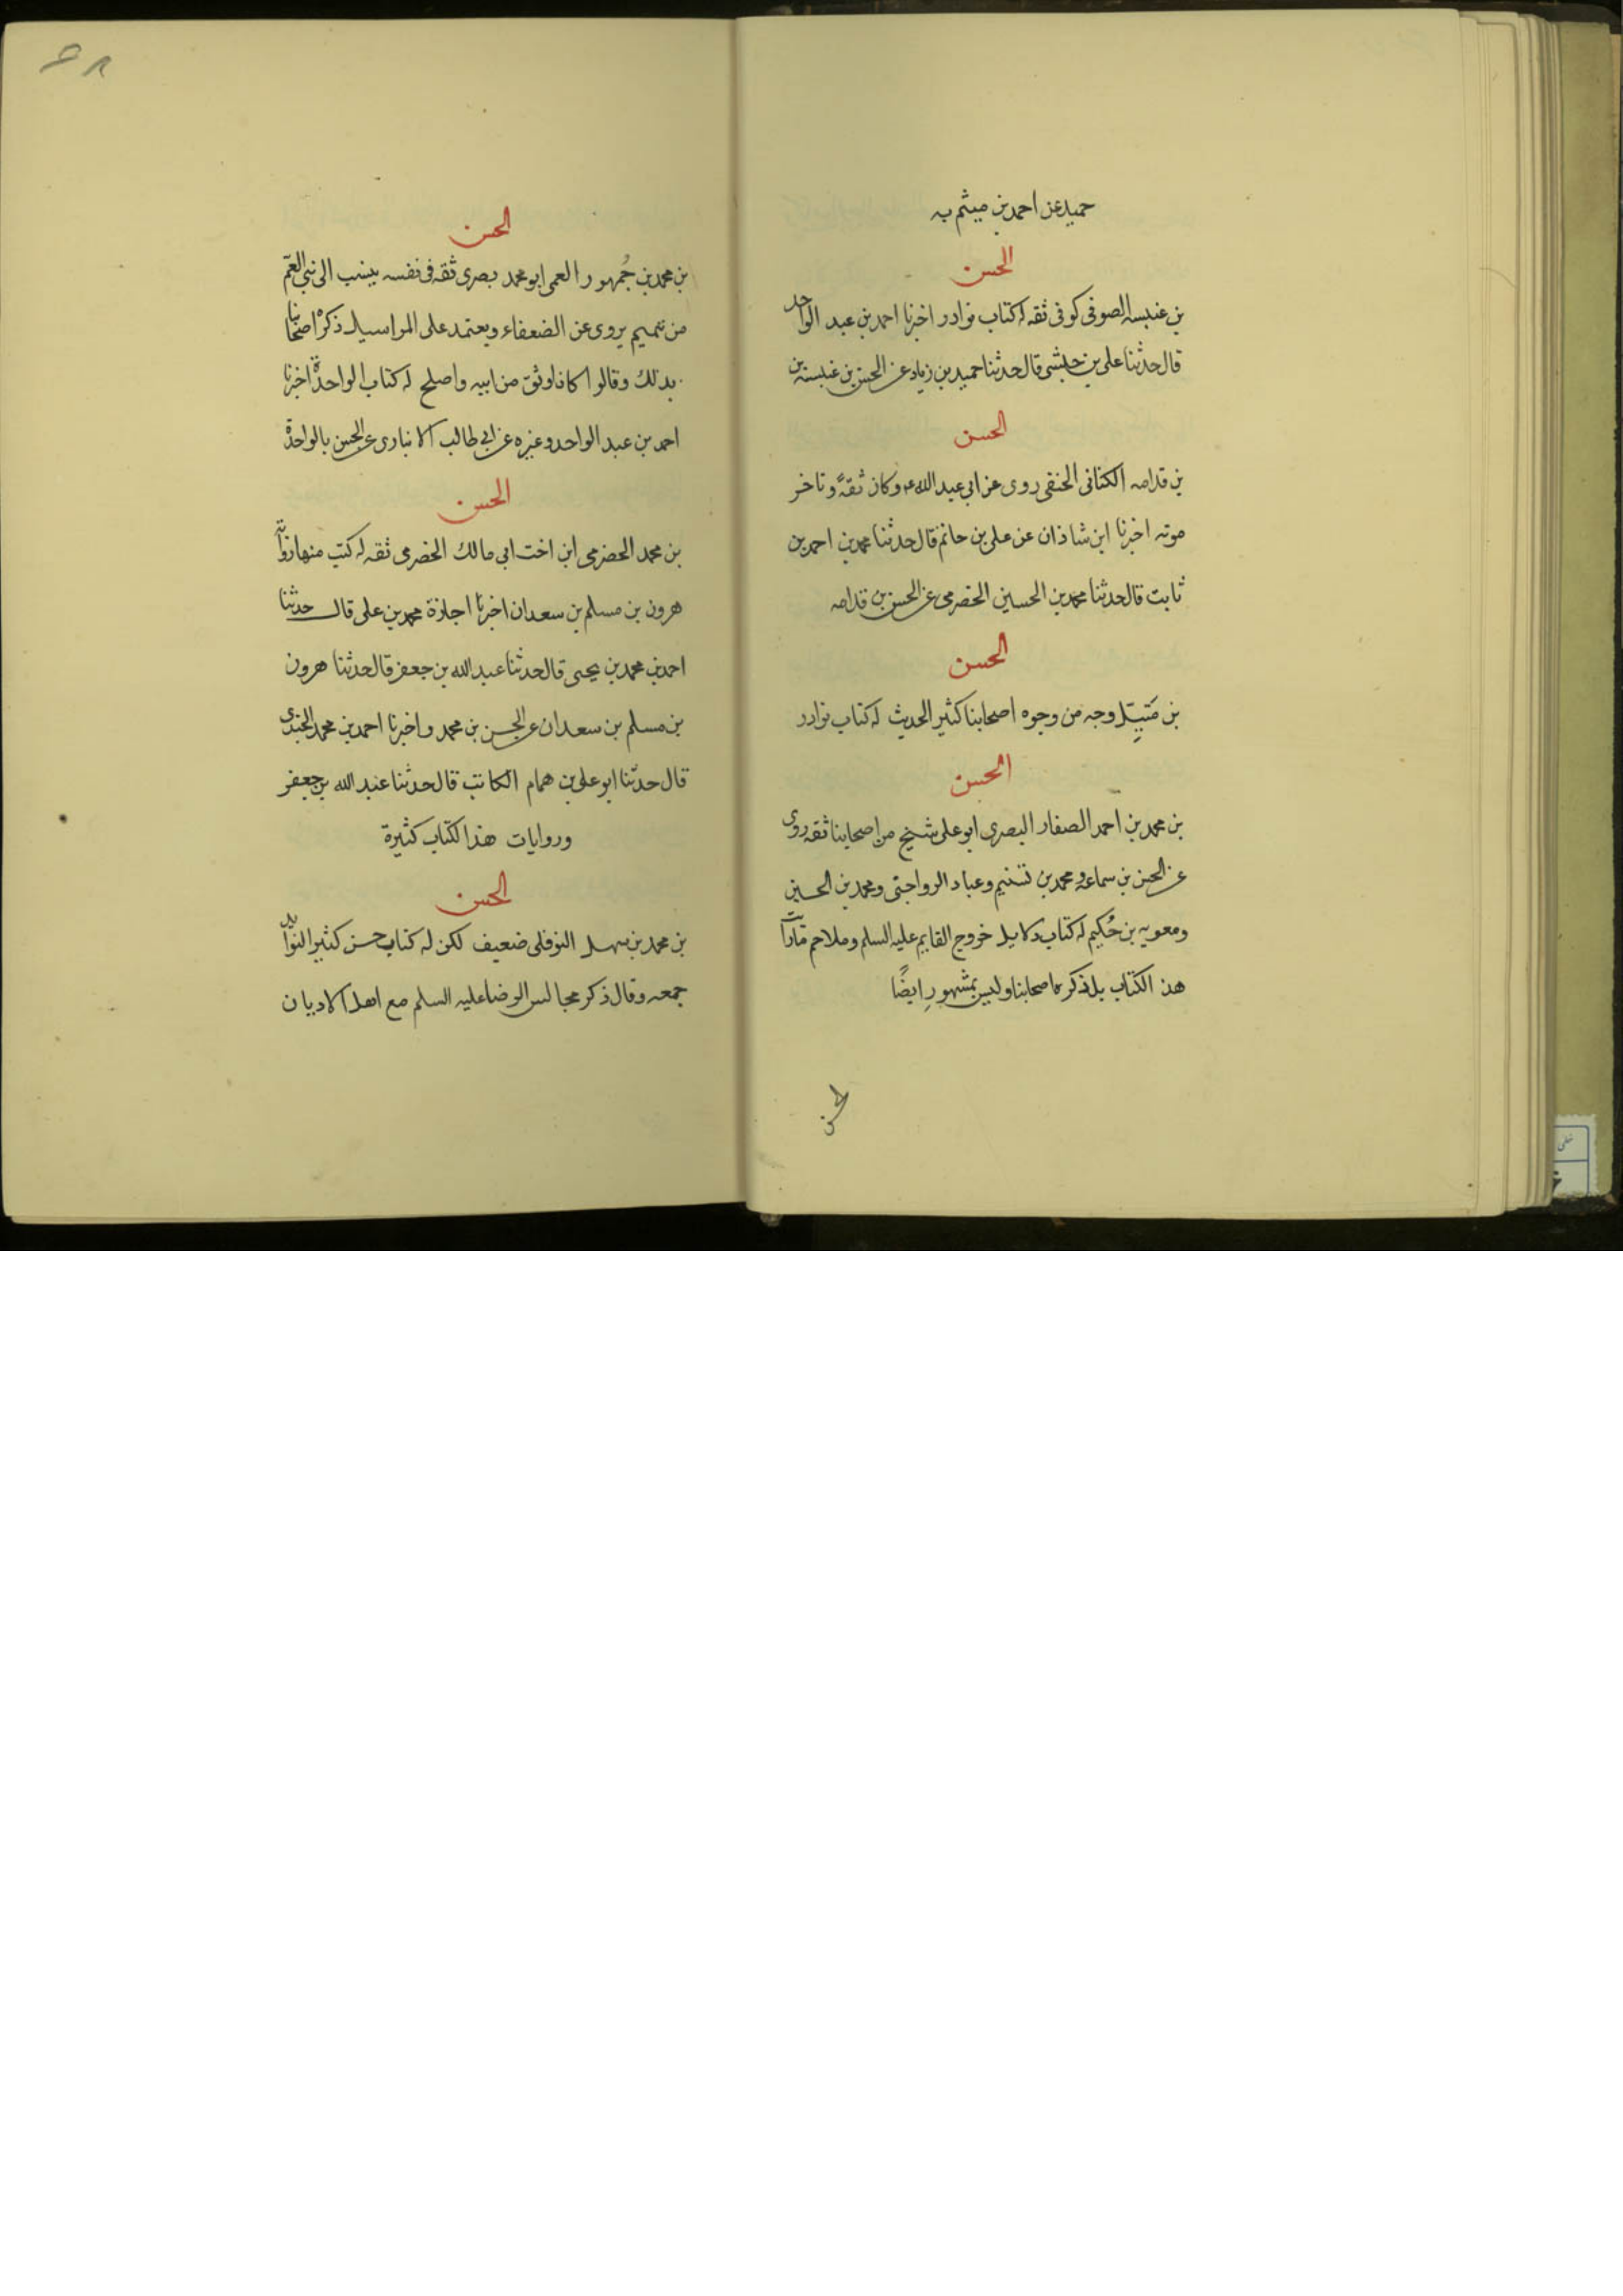 حميد عن احمد بن ميثم به
الحسن
بن عنبسه الصوفى كوفى ثقه له كتاب نوادر اخبرنا احمد بن عبد الواحد
قال حدثنا على بن حبشى قال حدثنا حميد بن زياد عن الحسن بن عنبسه
الحسن
بن قدامه الكنانى الحنفى روى عن ابى عبد الله ع وكان ثقةً وتاخر
موته اخبرنا ابن شاذان عن على بن حاتم قال حدثنا محمد بن احمد بن
ثابت قال حدثنا محمد بن الحسين الحضرمى عن الحسن بن قدامه
الحسن
بن مَتّيل وجه من وجوه اصحابنا كثير الحديث له كتاب نوادر
الحسن
بن محمد بن احمد الصفار البصرى ابو على شيخ من اصحابنا ثقه روى
عن الحسن بن سماعه ومحمد بن تسنيم وعباد الرواجنى ومحمد بن الحسين
ومعويه بن حُكيم له كتاب دلايل خروج القايم عليه السلم وملاحم
هذا الكتاب بل ذكر اصحابنا وليس بمشهورٍ ايضًا
الحسن
الحسن
بن محمد بن جُمهور العمى ابو محمد بصرى ثقه فى نفسه ينسب الى بنى العمّ
من تميم يروى عن الضعفاء ويعتمد على المراسيل ذكره اصحابنا
بذلك وقالوا كان اوثق من ابيه واصلح له كتاب الواحدة اخبرنا
احمد بن عبد الواحد وغيره عن ابى طالب الانبارى عن الحسن بالواحدة
الحسن
بن محمد الحضرمى ابن اخت ابى مالك الحضرمى ثقه له كتب منها رواية
هرون بن مسلم بن سعدان اخبرنا اجازة محمد بن على قال حدثنا
احمد بن محمد بن يحيى قال حدثنا عبد الله بن جعفر قال حدثنا هرون
بن مسلم بن سعدان عن الحسن بن محمد واخبرنا احمد بن محمد الجندى
قال حدّثنا ابو على بن همام الكاتب قال حدثنا عبد الله بن جعفر
وروايات هذا الكتاب كثيرة
الحسن
بن محمد بن سهل النوفلى ضعيف لكن له كتاب حسن كثير الفوايد
جمعه وقال ذكر مجالس الرضا عليه السلم مع اهل الاديان